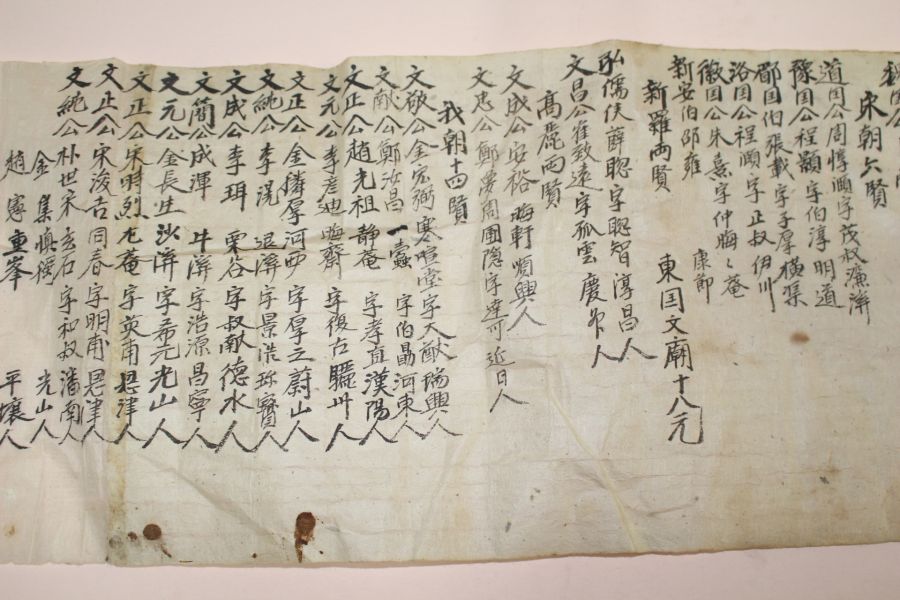 宋朝六賢
道国公周惇頤字茂叔濂溪
豫国公程顥字伯淳明道
郿国伯張載字子厚橫渠
洛国公程頤字正叔伊川
徽国公朱熹字仲晦〻菴
新安伯邵雍 康節
新羅兩賢 東国文廟十八元
弘儒侯薛聰字聰智淳昌人
文昌公崔致遠字孤雲慶州人
高麗兩賢
文成公安裕 晦軒順興人
文忠公鄭夢周圃隱字達可近日人
我朝十四賢
文敬公金宏弼寒暄堂字大猷瑞興人
文献公鄭汝昌 一蠹 字伯勗河東人
文正公趙光祖 靜菴 字孝直漢陽人
文元公李彦迪晦齋 字復古驪州人
文正公金麟厚河西 字厚之蔚山人
文純公李滉 退溪字景浩珍寶人
文成公李珥 栗谷字叔献德水人
文簡公成渾 牛溪字浩源昌寧人
文元公金長生沙溪字希元光山人
文正公宋時烈尤菴字英甫恩津人
文正公宋浚吉同春字明甫恩津人
文純公朴世采玄石字和叔潘南人
金集愼獨 光山人
趙憲重峯 平壤人